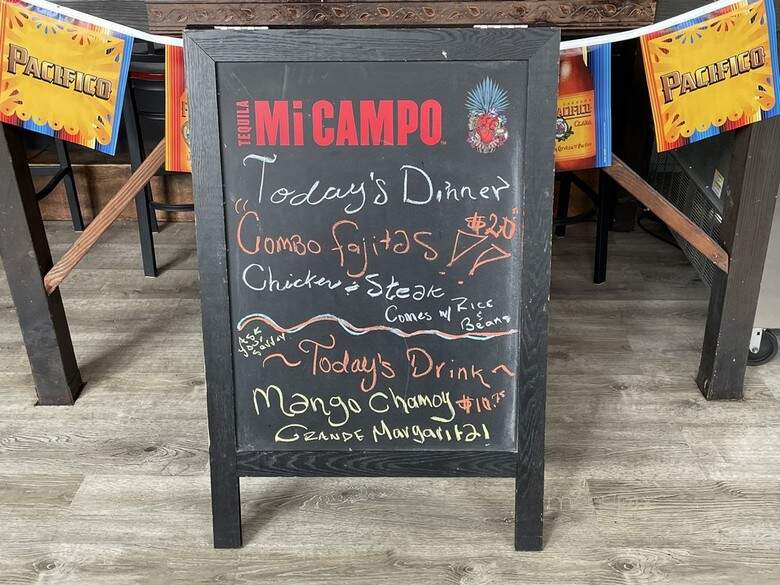 PACIFICO
TEQUILA
Mi CAMPO
PACIFICO
CLARA
Today's Dinner
"Combo Fajitas!! $20"
Chicken & Steak
Comes w/ Rice & Beans
Ask your
~ Today's Drink ~
Mango Chamoy $10.
GRANDE Margarita!